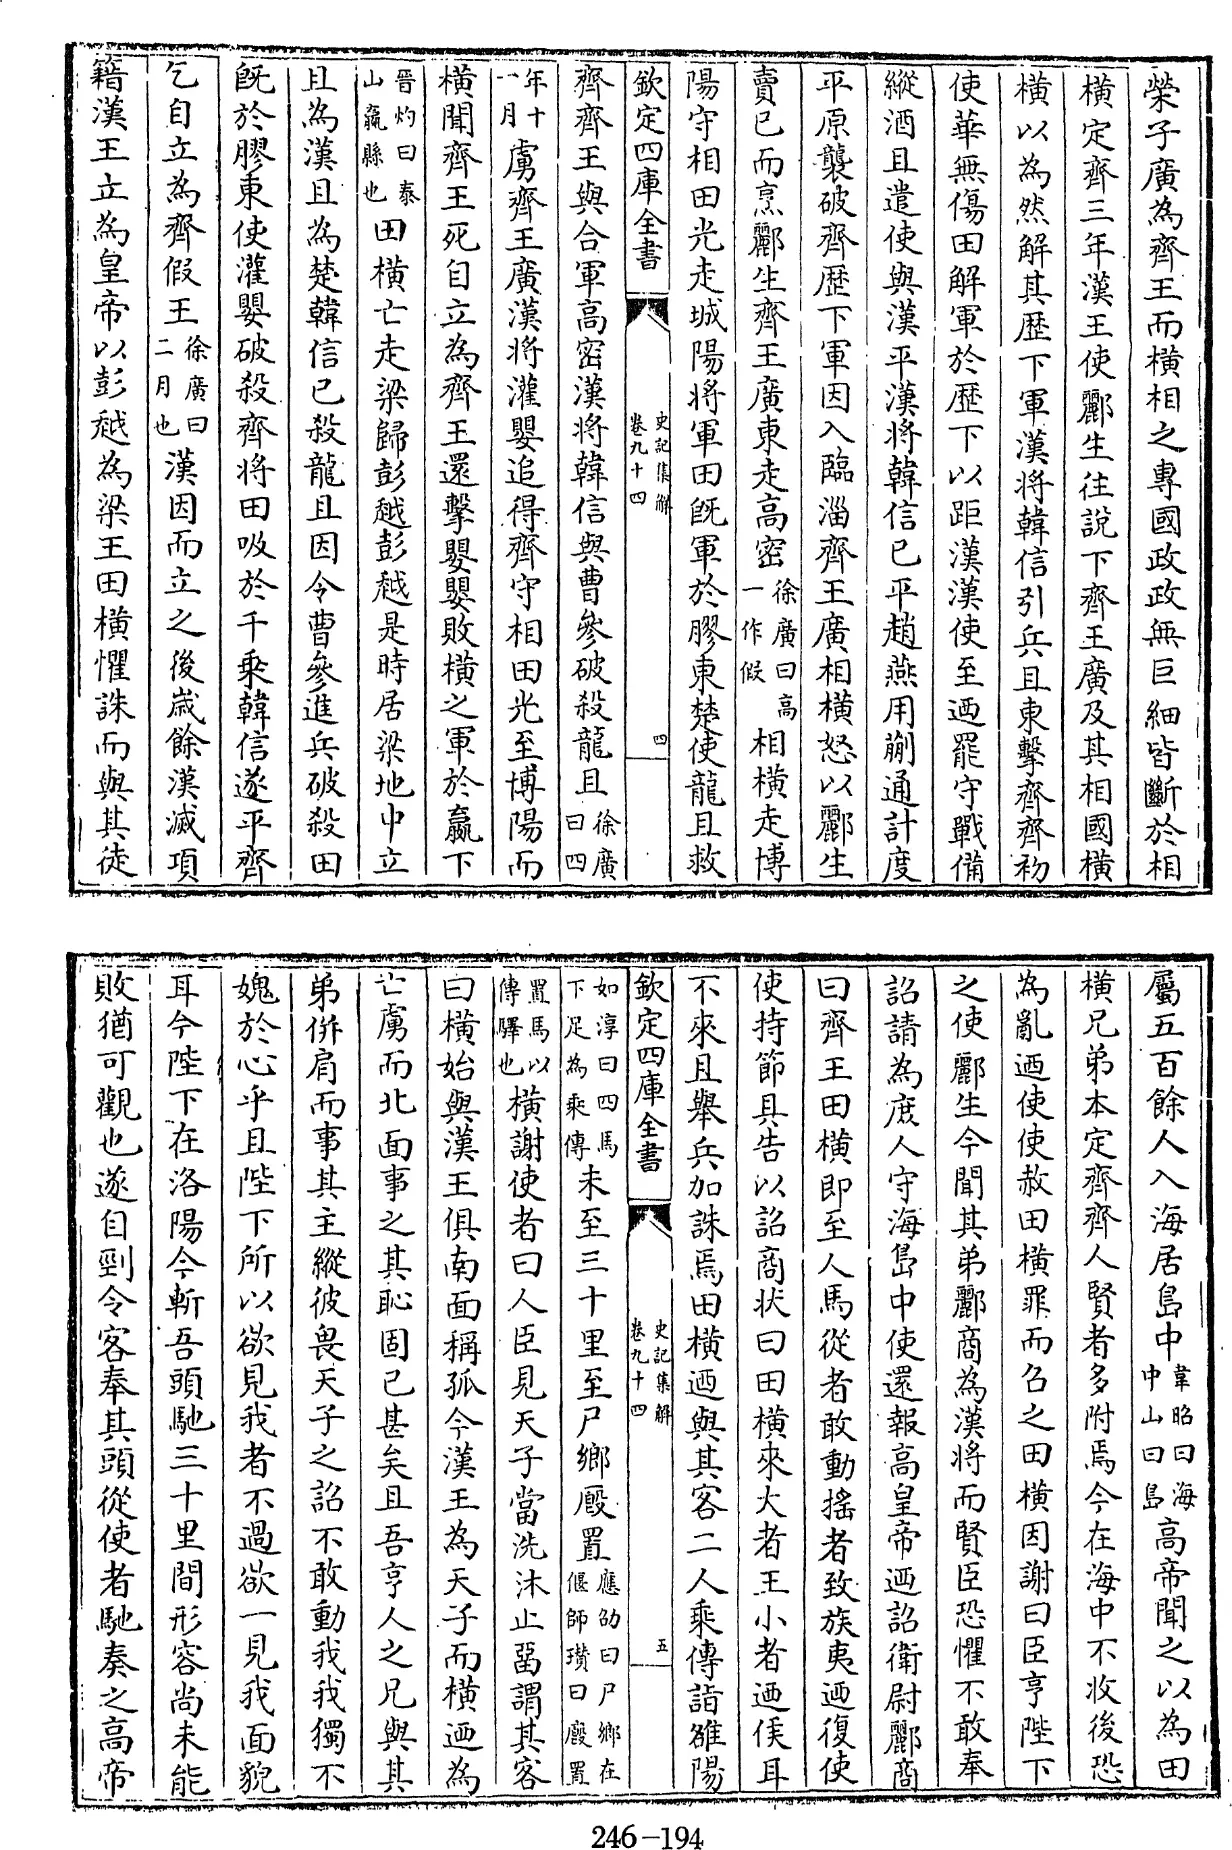 榮子廣為齊王而橫相之專國政政無巨細皆斷於相
橫定齊三年漢王使酈生往說下齊王廣及其相國橫
橫以為然解其歷下軍漢將韓信引兵且東擊齊齊初
使華無傷田解軍於歷下以距漢漢使至迺罷守戰備
縱酒且遣使與漢平漢將韓信已平趙燕用蒯通計度
平原襲破齊歷下軍因入臨淄齊王廣相橫怒以酈生
賣已而烹酈生齊王廣東走高密徐廣曰高一作假相橫走博
陽守相田光走城陽將軍田既軍於膠東楚使龍且救
欽定四庫全書 史記集解卷九十四 四
齊齊王與合軍高密漢將韓信與曹參破殺龍且徐廣曰四
年十一月虜齊王廣漢將灌嬰追得齊守相田光至博陽而
橫聞齊王死自立為齊王還擊嬰嬰敗橫之軍於嬴下
晉灼曰泰山嬴縣也田橫亡走梁歸彭越彭越是時居梁地中立
且為漢且為楚韓信已殺龍且因令曹參進兵破殺田
既於膠東使灌嬰破殺齊將田吸於千乘韓信遂平齊
乞自立為齊假王徐廣曰二月也漢因而立之後歲餘漢滅項
籍漢王立為皇帝以彭越為梁王田橫懼誅而與其徒
屬五百餘人入海居島中韋昭曰海中山曰島高帝聞之以為田
橫兄弟本定齊齊人賢者多附焉今在海中不收後恐
為亂迺使使赦田橫罪而召之田橫因謝曰臣亨陛下
之使酈生今聞其弟酈商為漢將而賢臣恐懼不敢奉
詔請為庶人守海島中使還報高皇帝迺詔衛尉酈商
曰齊王田橫即至人馬從者敢動搖者致族夷迺復使
使持節具告以詔商狀曰田橫來大者王小者迺侯耳
不來且舉兵加誅焉田橫迺與其客二人乘傳詣雒陽
欽定四庫全書 史記集解卷九十四 五
如淳曰四馬下足為乘傳未至三十里至尸鄉廄置應劭曰尸鄉在偃師瓚曰廄置
置馬以傳驛也橫謝使者曰人臣見天子當洗沐止留謂其客
曰橫始與漢王俱南面稱孤今漢王為天子而橫迺為
亡虜而北面事之其恥固已甚矣且吾亨人之兄與其
弟併肩而事其主縱彼畏天子之詔不敢動我我獨不
媿於心乎且陛下所以欲見我者不過欲一見我面貌
耳今陛下在洛陽今斬吾頭馳三十里間形容尚未能
敗猶可觀也遂自剄令客奉其頭從使者馳奏之高帝
246-194